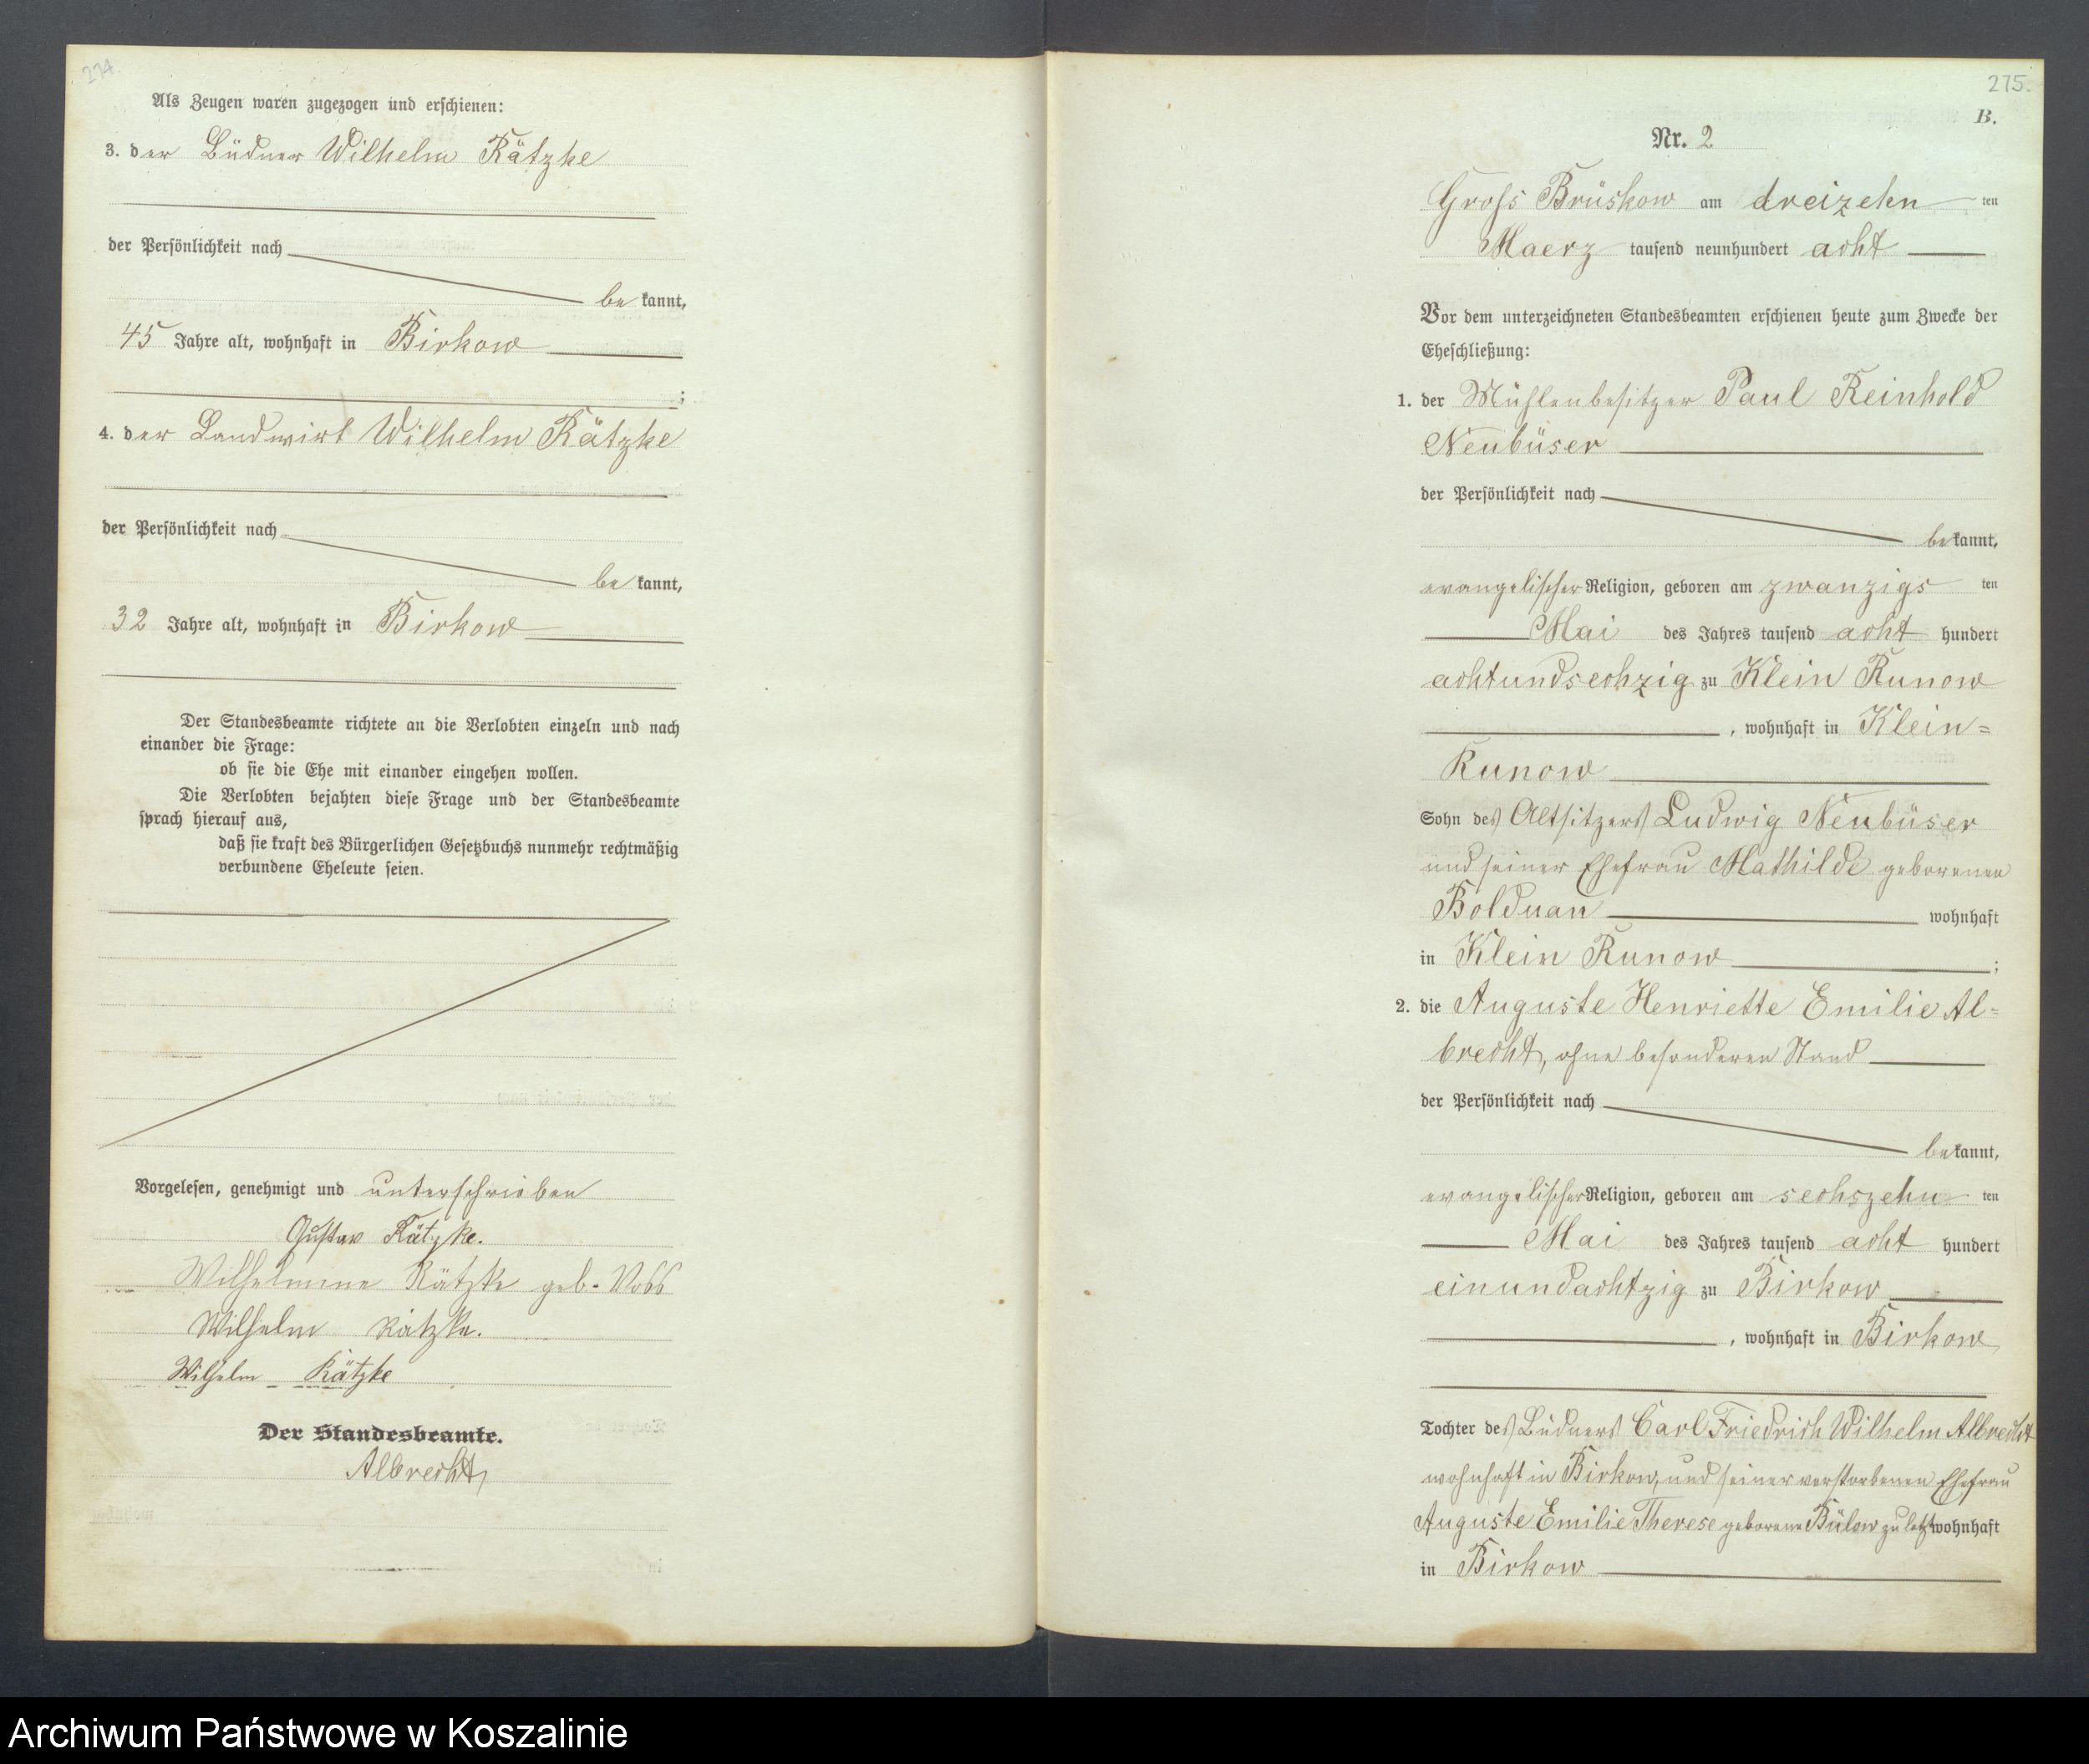 274.
Als Zeugen waren zugezogen und erschienen:
3. der Büdner Wilhelm Rätzke
der Persönlichkeit nach
be kannt,
45 Jahre alt, wohnhaft in Birkow
;
4. der Landwirt Wilhelm Rätzke
der Persönlichkeit nach
be kannt,
32 Jahre alt, wohnhaft in Birkow
Der Standesbeamte richtete an die Verlobten einzeln und nach
einander die Frage:
ob sie die Ehe mit einander eingehen wollen.
Die Verlobten bejahten diese Frage und der Standesbeamte
sprach hierauf aus,
daß sie kraft des Bürgerlichen Gesetzbuchs nunmehr rechtmäßig
verbundene Eheleute seien.
Vorgelesen, genehmigt und unterschrieben
Gustav Rätzke.
Wilhelmine Rätzke geb. Voss
Wilhelm Rätzke.
Wilhelm Rätzke
Der Standesbeamte.
Albrecht
275.
B.
Nr. 2
Gross Brüskow am dreizehn ten
Maerz tausend neunhundert acht
Vor dem unterzeichneten Standesbeamten erschienen heute zum Zwecke der
Eheschließung:
1. der Mühlenbesitzer Paul Reinhold
Neubüser
der Persönlichkeit nach
be kannt,
evangelischer Religion, geboren am zwanzigs ten
Mai des Jahres tausend acht hundert
achtundsechzig zu Klein Runow
, wohnhaft in Klein=
Runow
Sohn des Altsitzers Ludwig Neubüser
und seiner Ehefrau Mathilde geborenen
Bolduan wohnhaft
in Klein Runow ;
2. die Auguste Henriette Emilie Al=
brecht, ohne besonderen Stand
der Persönlichkeit nach
be kannt,
evangelischer Religion, geboren am sechszehn ten
Mai des Jahres tausend acht hundert
einundachtzig zu Birkow
, wohnhaft in Birkow
Tochter des Büdners Carl Friedrich Wilhelm Albrecht
wohnhaft in Birkow, und seiner verstorbenen Ehefrau
Auguste Emilie Therese geborene Bülow zuletzt wohnhaft
in Birkow
Archiwum Państwowe w Koszalinie